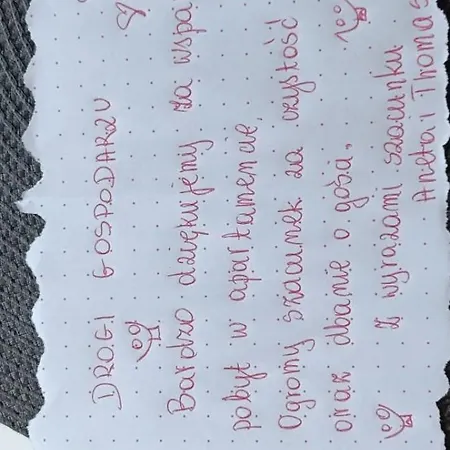 DROGI GOSPODARZU
Bardzo dziękujemy za wspa
pobyt w apartamencie,
Ogromy szacunek za czystość
oraz dbanie o gości.
Z wyrazami szacunku
Aneta i Thomas